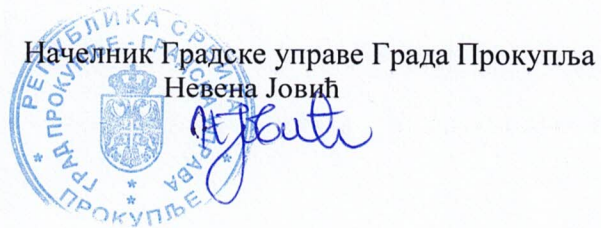 Начелник Градске управе Града Прокупља
Невена Јовић
РЕПУБЛИКА СРБИЈА
ГРАД ПРОКУПЉЕ - ГРАДСКА УПРАВА
ПРОКУПЉЕ